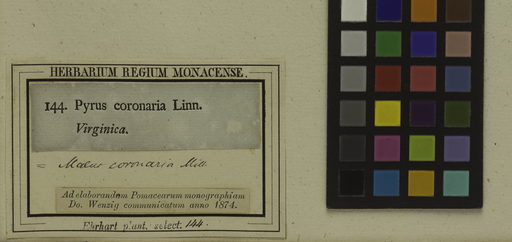 HERBARIUM REGIUM MONACENSE.
144. Pyrus coronaria Linn.
Virginica.
= Malus coronaria Mill.
Ad elaborandam Pomacearum monographiam
Do. Wenzig communicatum anno 1874.
Ehrhart plant. select. 144.